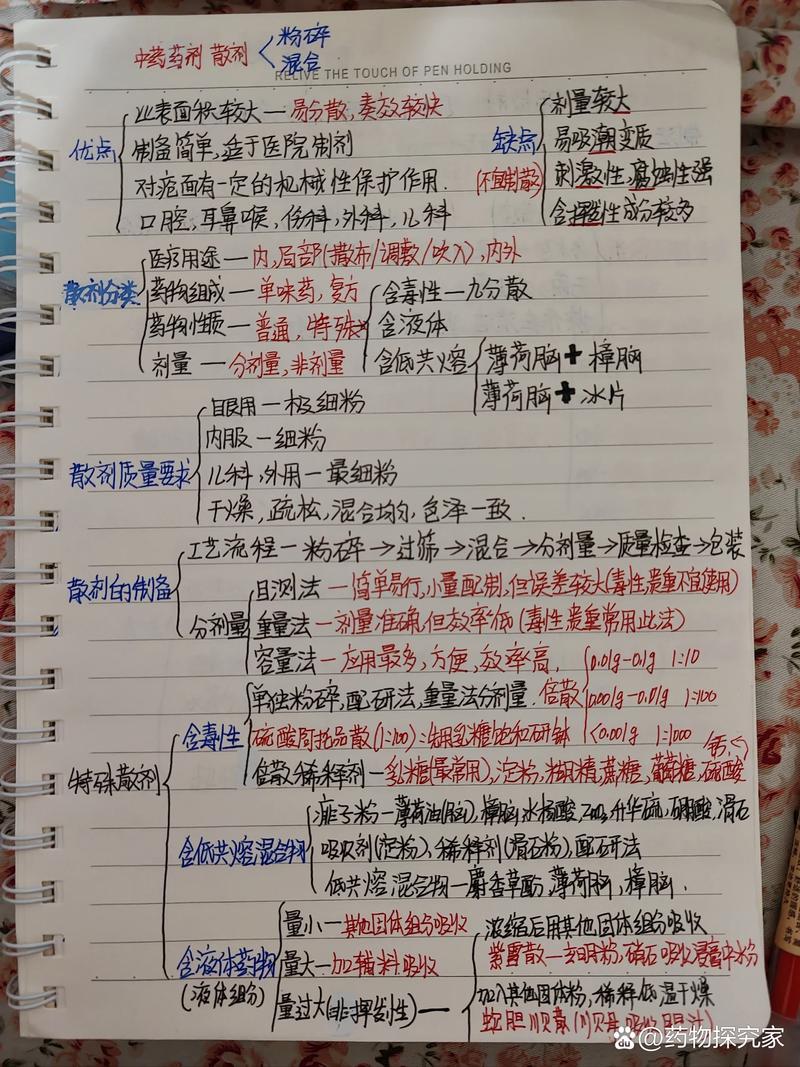 中药药剂 散剂
粉碎
混合
RELIVE THE TOUCH OF PEN HOLDING
优点
比表面积较大—易分散,奏效较快
制备简单,适于医院制剂
对疮面有一定的机械性保护作用.
口腔,耳鼻喉,伤科,外科,儿科
缺点
(不宜制散)
剂量较大
易吸潮变质
刺激性,腐蚀性强
含挥发性成分较多
散剂分类
医疗用途—内,局部(撒布/调敷/吹入),内外
药物组成—单味药,复方
药物性质—普通,特殊
剂量—分剂量,非剂量
含毒性—九分散
含液体
含低共熔
薄荷脑+樟脑
薄荷脑+冰片
散剂质量要求
目眼用—极细粉
内服—细粉
儿科,外用—最细粉
干燥,疏松,混合均匀,色泽一致.
散剂的制备
工艺流程—粉碎→过筛→混合→分剂量→质量检查→包装
分剂量
目测法—简单易行,小量配制,但误差较大(毒性,贵重不宜使用)
重量法—剂量准确,但效率低(毒性,贵重常用此法)
容量法—应用最多,方便,效率高.
特殊散剂
含毒性
单独粉碎,配研法,重量法分剂量.倍散
0.01g-0.1g 1:10
0.001g-0.01g 1:100
<0.001g 1:1000
硫酸阿托品散(1:100):先用乳糖饱和研钵
倍散稀释剂—乳糖(最常用),淀粉,糊精,蔗糖,葡萄糖,硫酸
钙
含低共熔混合物
痱子粉—薄荷油(脑),樟脑,水杨酸,ZnO,升华硫,硼酸,滑石
吸收剂(淀粉),稀释剂(滑石粉),配研法
低共熔混合物—麝香草酚,薄荷脑,樟脑.
含液体药物
(液体组分)
量小—其他固体组分吸收
量大—加辅料吸收
量过大(非挥发性)—
浓缩后用其他固体组分吸收
紫雪散—玄明粉,硝石吸收
加入其他固体粉,稀释低温干燥
蛇胆川贝散(川贝母吸收胆汁)
@药物探究家